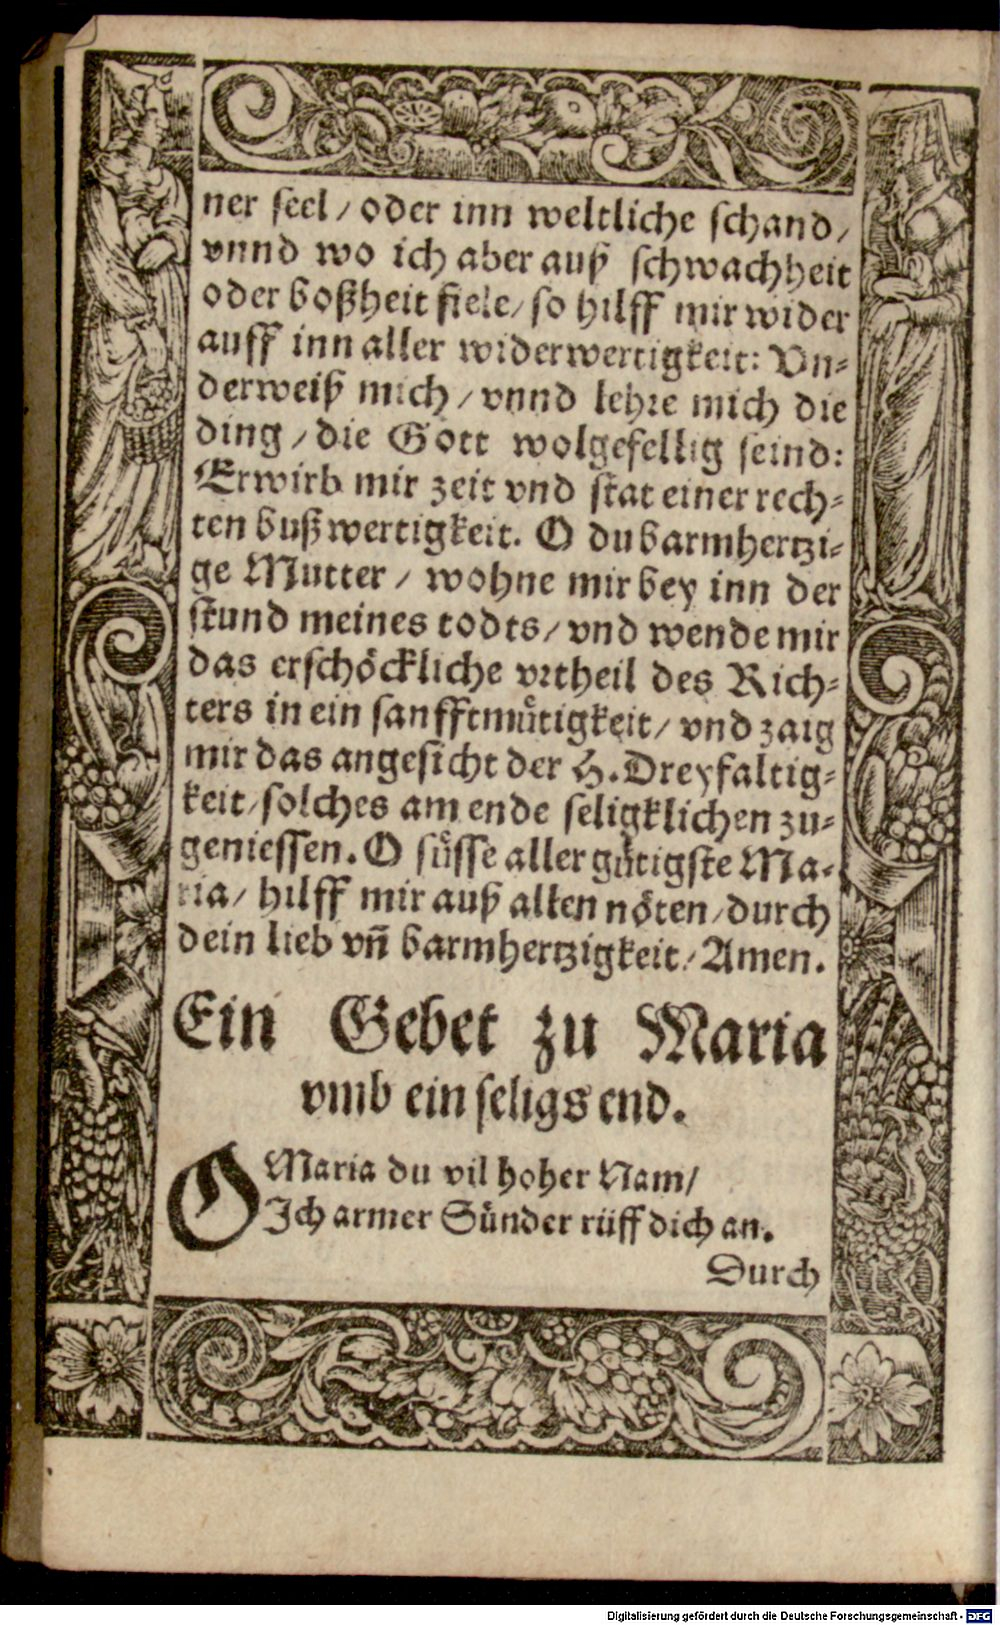 ner seel / oder inn weltliche schand /
vnnd wo ich aber auß schwachheit
oder boßheit fiele / so hilff mir wider
auff inn aller widerwertigkeit: Vn-
derweiß mich / vnnd lehre mich die
ding / die Gott wolgefellig seind:
Erwirb mir zeit vnd stat einer rech-
ten bußwertigkeit. O du barmhertzi-
ge Mutter / wohne mir bey inn der
stund meines todts / vnd wende mir
das erschöckliche vrtheil des Rich-
ters in ein sanfftmuͤtigkeit / vnd zaig
mir das angesicht der H. Dreyfaltig-
keit / solches am ende seligklichen zu-
geniessen. O suͤsse aller guͤtigste Ma-
ria / hilff mir auß allen nöten / durch
dein lieb vñ barmhertzigkeit / Amen.
Ein Gebet zu Maria
vmb ein seligs end.
O Maria du vil hoher Nam /
Ich armer Sünder rüff dich an.
Durch
Digitalisierung gefördert durch die Deutsche Forschungsgemeinschaft - DFG